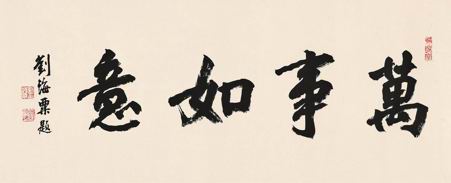 萬事如意
劉海粟題